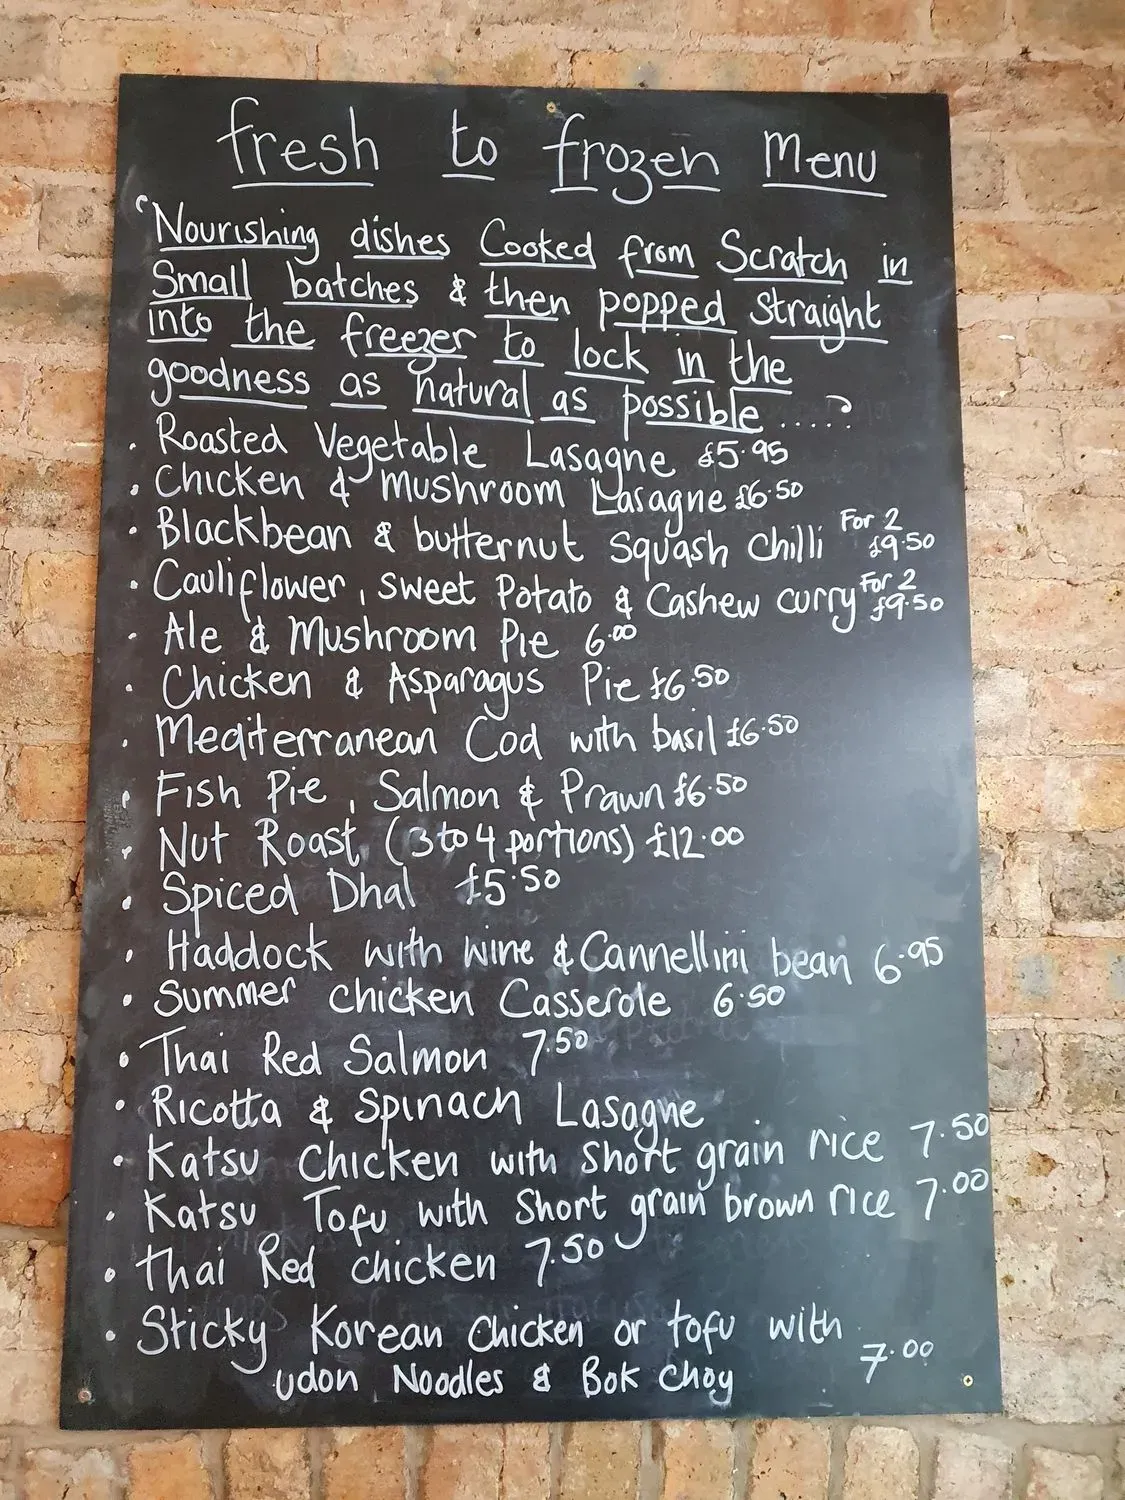 fresh to frozen Menu
"Nourishing dishes Cooked from Scratch in
Small batches & then popped straight
into the freezer to lock in the
goodness as natural as possible .....?
· Roasted Vegetable Lasagne £5.95
· Chicken & Mushroom Lasagne £6.50
· Blackbean & butternut Squash Chilli For 2 £9.50
· Cauliflower, Sweet Potato & Cashew curry For 2 £9.50
· Ale & Mushroom Pie 6.00
· Chicken & Asparagus Pie £6.50
· Mediterranean Cod with basil £6.50
· Fish Pie, Salmon & Prawn £6.50
· Nut Roast (3 to 4 portions) £12.00
· Spiced Dhal £5.50
· Haddock with wine & Cannellini bean 6.95
· Summer chicken Casserole 6.50
· Thai Red Salmon 7.50
· Ricotta & Spinach Lasagne
· Katsu Chicken with Short grain rice 7.50
· Katsu Tofu with Short grain brown rice 7.00
· Thai Red chicken 7.50
· Sticky Korean Chicken or tofu with
udon Noodles & Bok Choy 7.00